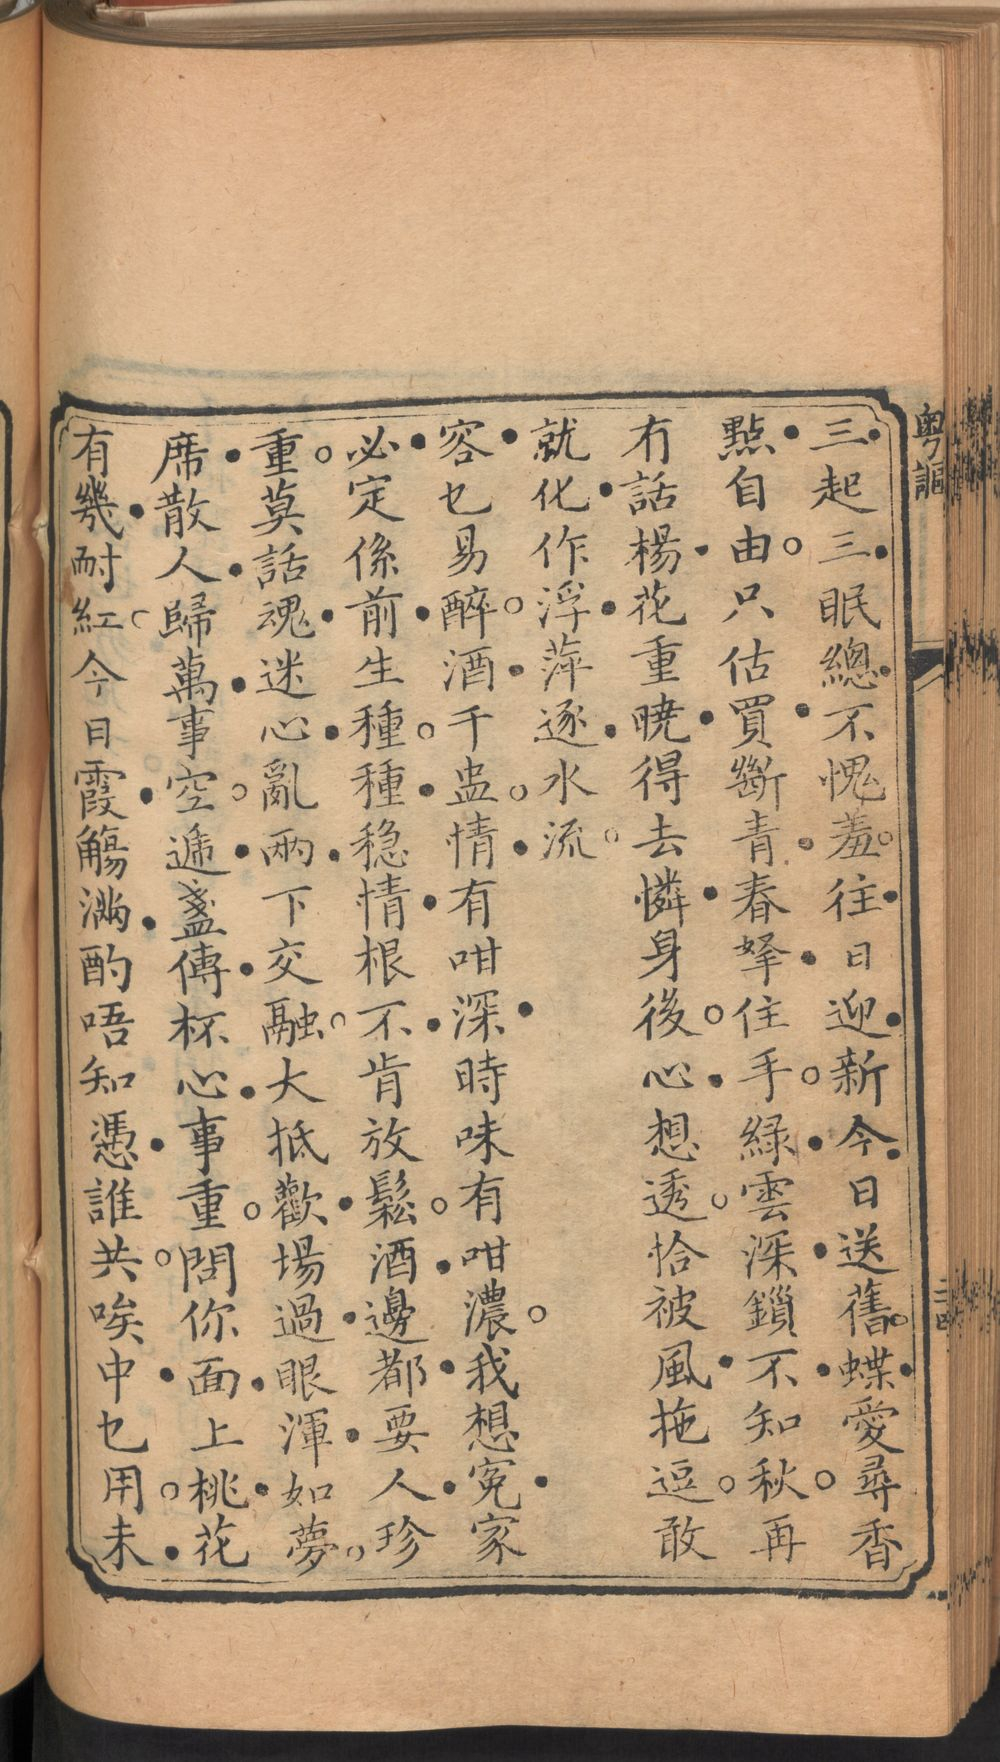 粵謳
三起三眠總不愧羞往日迎新今日送舊蝶愛尋香
點自由只估買斷青春拏住手綠雲深鎖不知秋再
冇話楊花重曉得去憐身後心想透恰被風拖逗敢
就化作浮萍逐水流
容乜易醉酒千盅情有咁深時味有咁濃我想寃家
必定係前生種種穏情根不肯放鬆酒邊都要人珍
重莫話魂迷心亂兩下交融大抵歡塲過眼渾如夢
席散人歸萬事空遞盞傳杯心事重問你面上桃花
有幾耐紅今日霞觴滿酌唔知憑誰共唉中乜用未